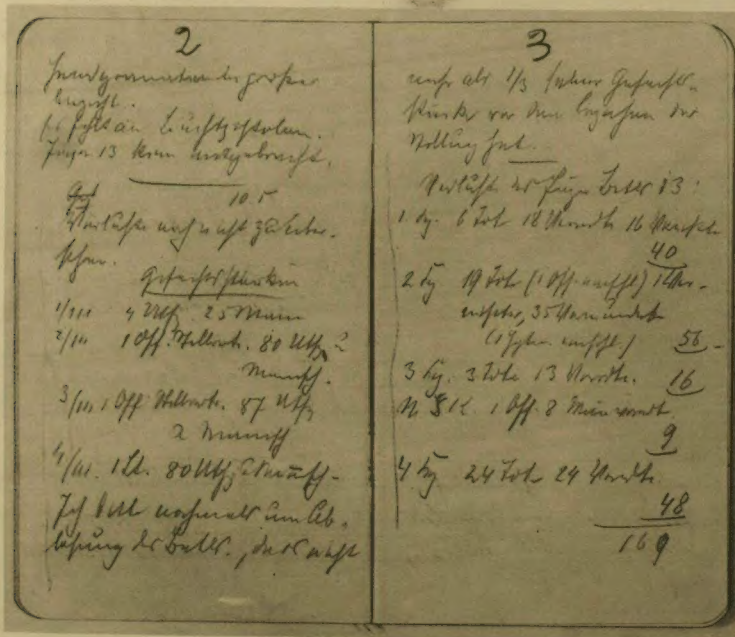 2
Handgranaten in großer
Anzahl.
Es fehlt an Leuchtpistolen.
Jäger 13 kom
10.5
Verluste noch nicht zu über-
sehen.
Gefechtsstärken
1/III 4 Utffz. 25 Mann
2/III 1 Off. Stellvertr. 80 Utffz u
Mannsch.
3/III 1 Off Stellvertr. 87 Utffz
u Mannsch
4/III. 1 Lt. 80 Utffz u Mannsch-
Ich bitte nochmals um Ab-
lösung des Batls., das nicht
3
mehr als 1/3 seiner Gefechts-
stärke vor dem Beziehen der
Stellung hat.
Verluste des Jäger Batls 13:
1 Kp. 6 Tote 18 Verwdte 16 Vermißte
40
2 Kp 19 Tote (1 Off. einschl.) 1 Ver-
mißter, 35 Verwundete
56-
3 Kp. 3 Tote 13 Verwdte. 16
1 Off. 8 Mann verwdt.
9
4 Kp 24 Tote 24 Verwdte.
48
169